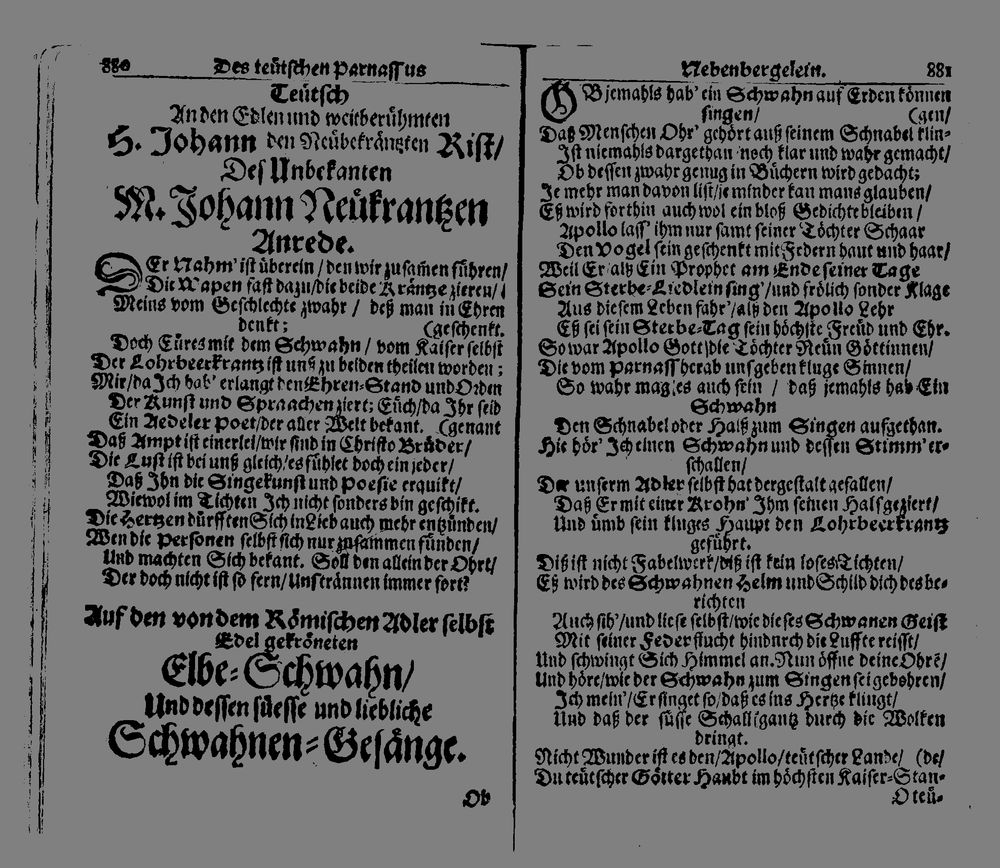 880 Des teütschen Parnassus
Teütsch
An den Edlen und weitberühmten
H. Johann den Neübekräntzten Rist/
Des Unbekanten
M. Johann Neükrantzen
Anrede.
DEr Nahm' ist überein/den wir zusamen führen/
Die Wapen fast dazu/die beide Kräntze zieren/
Meins vom Geschlechte zwahr / deß man in Ehren
denkt; (geschenkt.
Doch Eüres mit dem Schwahn/ vom Kaiser selbst
Der Lohrbeerkrantz ist unß zu beiden theilen worden;
Mir/da Jch hab' erlangt den Ehren-Stand und Orden
Der Kunst und Spraachen ziert; Eüch/da Ihr seid
Ein Aedeler Poet/der aller Welt bekant. (genant
Daß Ampt ist einerlei/wir sind in Christo Brüder/
Die Lust ist bei unß gleich/es fühlet doch ein jeder/
Daß Ihn die Singekunst und Poesie erquikt/
Wiewol im Tichten Jch nicht sonders bin geschikt.
Die Hertzen dürfften Sich in Lieb auch mehr entzünden/
Wen die Personen selbst sich nur zusammen fünden/
Und machten Sich bekant. Soll den allein der Ohrt/
Der doch nicht ist so fern/Unß trännen immer fort?
Auf den von dem Römischen Adler selbst
Edel gekröneten
Elbe-Schwahn/
Und dessen süesse und liebliche
Schwahnen-Gesänge.
Ob
Nebenbergelein. 881
OB jemahls hab' ein Schwahn auf Erden können
singen/ (gen/
Daß Menschen Ohr' gehört auß seinem Schnabel klin-
Ist niemahls dargethan noch klar und wahr gemacht/
Ob dessen zwahr genug in Büchern wird gedacht;
Je mehr man davon list/je minder kan mans glauben/
Eß wird forthin auch wol ein bloß Gedichte bleiben/
Apollo lass' ihm nur samt seiner Töchter Schaar
Den Vogel sein geschenkt mit Federn haut und haar/
Weil Er/alß Ein Prophet am Ende seiner Tage
Sein Sterbe-Liedlein sing'/und frölich sonder Klage
Aus diesem Leben fahr'/alß den Apollo Lehr
Eß sei sein Sterbe-Tag sein höchste Freüd und Ehr.
So war Apollo Gott/die Töchter Neün Göttinnen/
Die vom Parnass herab uns geben kluge Sinnen/
So wahr mag/es auch sein / daß jemahls hab Ein
Schwahn
Den Schnabel oder Halß zum Singen aufgethan.
Hie hör' Jch einen Schwahn und dessen Stimm' er-
schallen/
Der unserm Adler selbst hat dergestalt gefallen/
Daß Er mit einer Krohn' Ihm seinen Hals geziert/
Und ümb sein kluges Haupt den Lohrbeerkrantz
geführt.
Diß ist nicht Fabelwerk/diß ist kein loses Tichten/
Eß wird des Schwahnen Helm und Schild dich des be-
richten
Auch sih'/und liese selbst/wie dieses Schwanen Geist
Mit seiner Feder flucht hindurch die Luffte reisst/
Und schwingt Sich Himmel an. Nun öffne deine Ohrē/
Und höre/wie der Schwahn zum Singen sei gebohren/
Jch mein'/Er singet so/daß es ins Hertze klingt/
Und daß der süsse Schall/gantz durch die Wolken
dringt.
Nicht Wunder ist es den/Apollo/teütscher Lande/ (de/
Du teütscher Götter Haubt im höchsten Kaiser-Stan-
O teü-